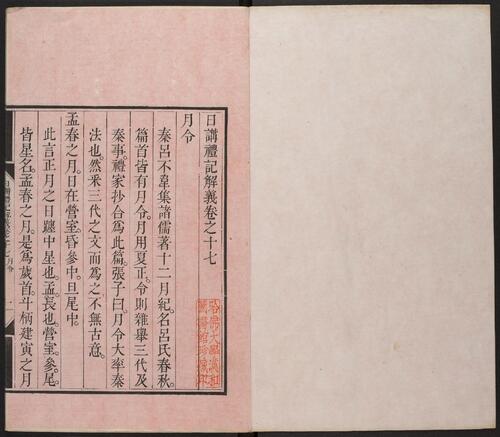 日講禮記解義卷之十七
月令
秦呂不韋集諸儒著十二月紀名呂氏春秋。
篇首皆有月令。月用夏正。令則雜舉三代及
秦事。禮家抄合爲此篇。張子曰月令大率秦
法也。然采三代之文而爲之不無古意。
孟春之月。日在營室。昏參中。旦尾中。
此言正月之日躔中星也。孟長也。營室。參。尾
皆星名。孟春之月。是爲歲首。斗柄建寅之月